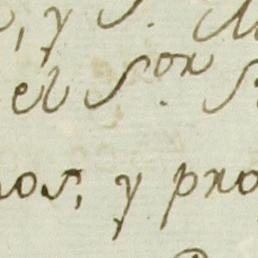 , y S. M
el S.or S
nos, y pro